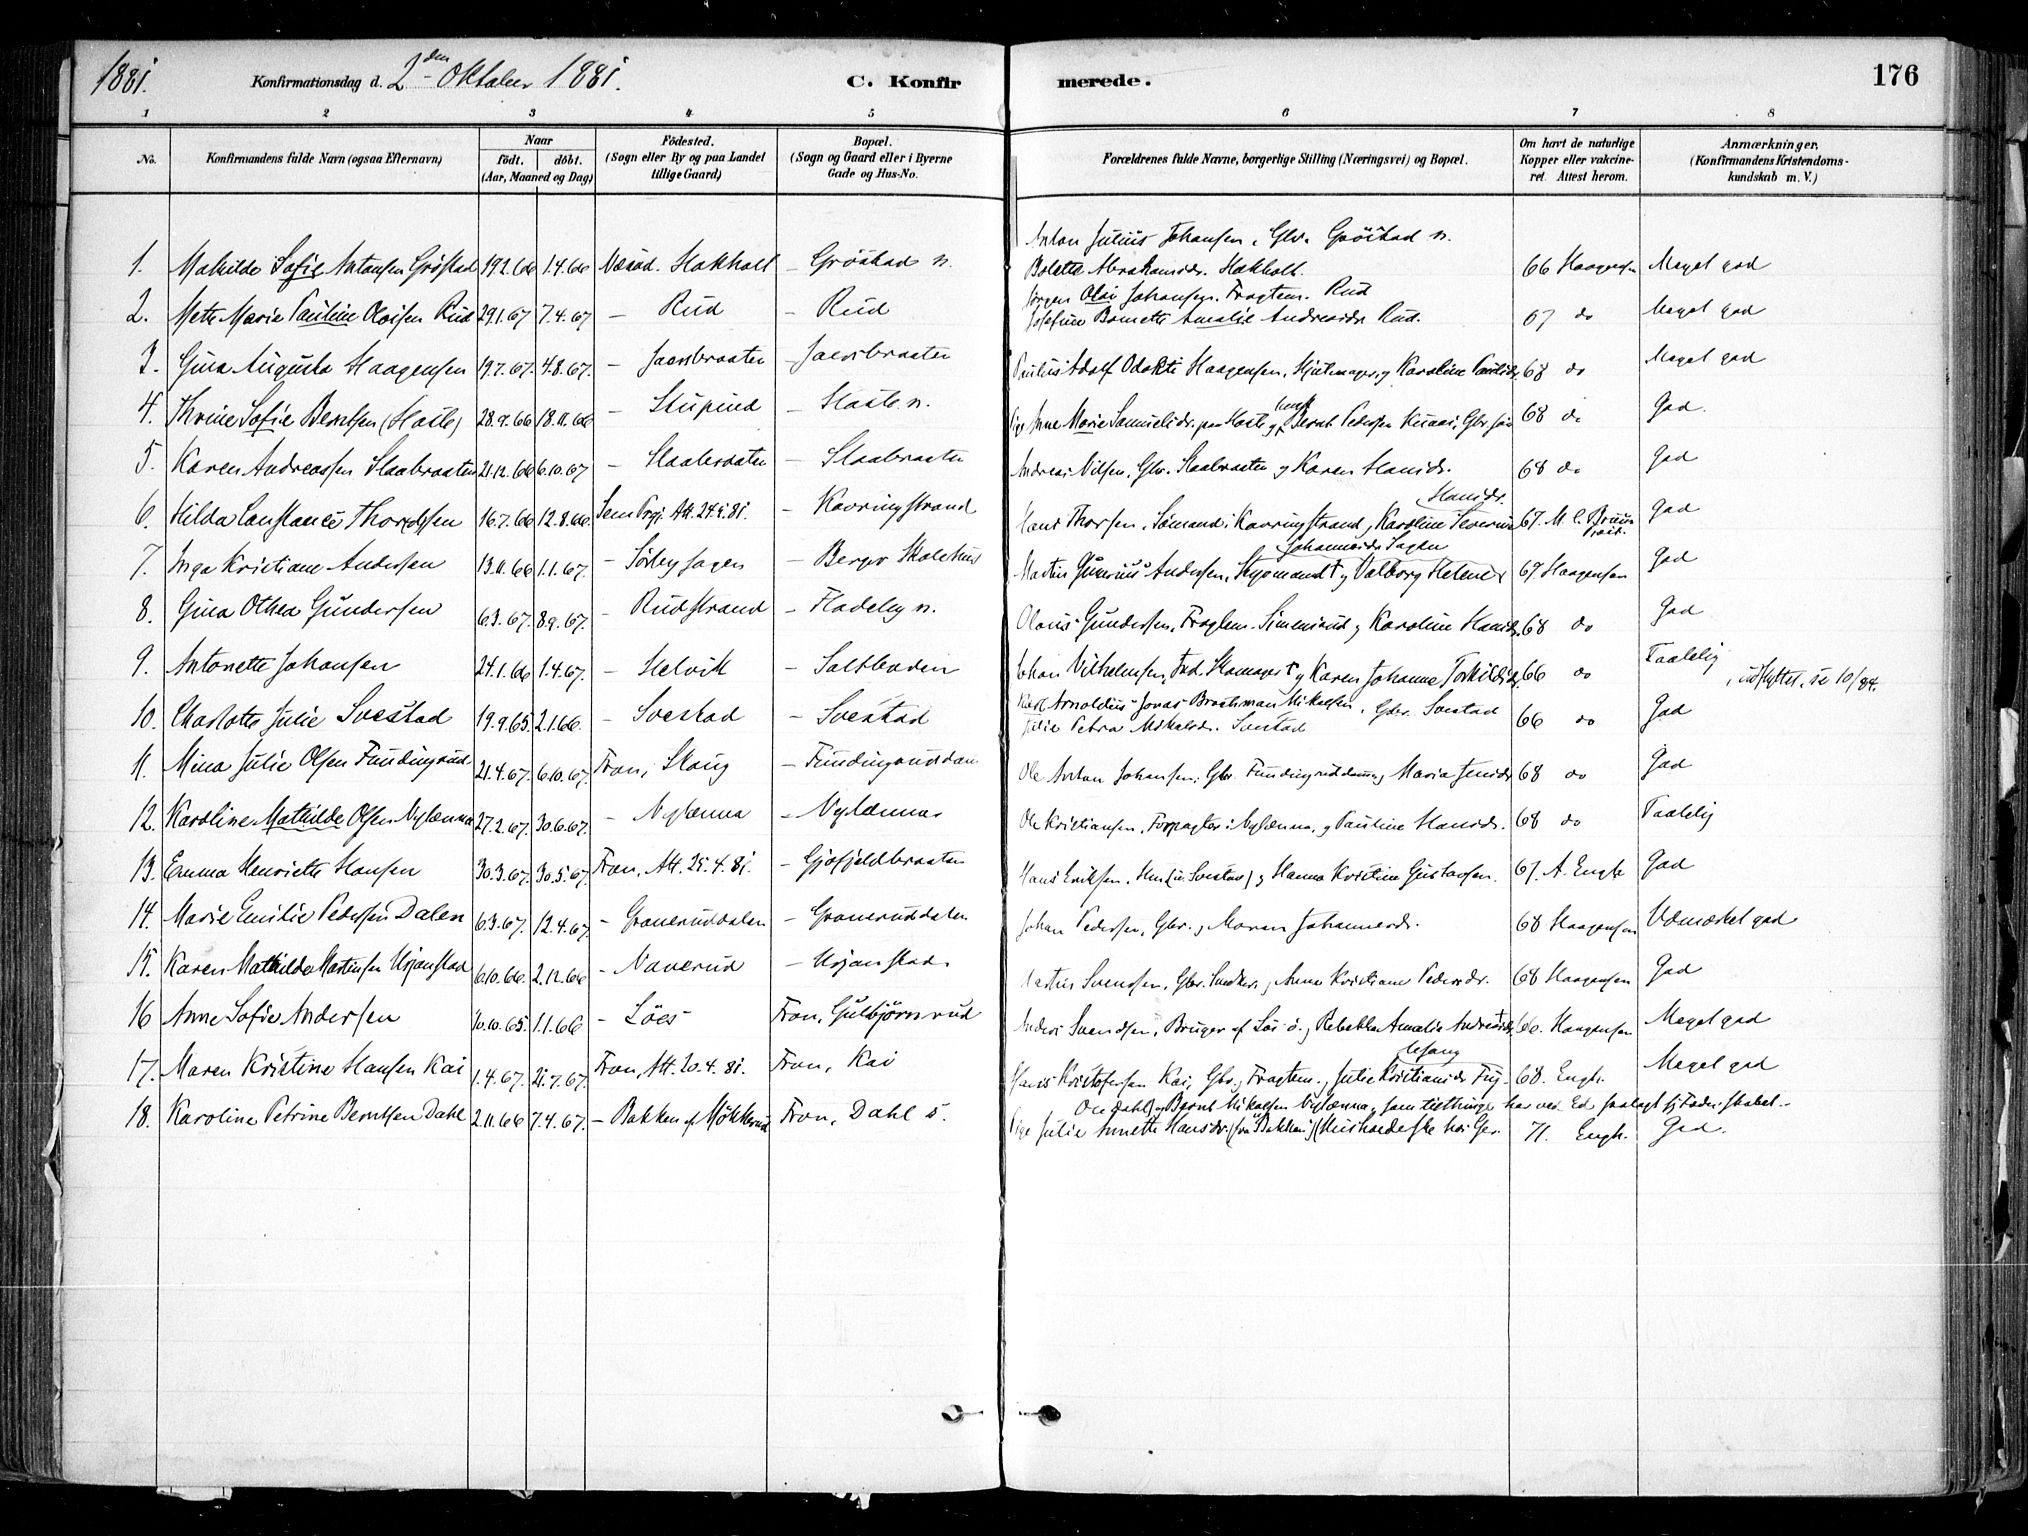 1881. Konfirmationsdag d. 2den Oktober 1881. C. Konfirmerede. 176
1 2 3 4 5 6 7 8
No. Konfirmandens fulde Navn (ogsaa Efternavn) Naar födt. döbt. (Aar, Maaned og Dag) Födested. (Sogn eller By og paa Landet tillige Gaard) Bopæl. (Sogn og Gaard eller i Byerne Gade og Hus-No. Forældrenes fulde Navne, borgerlige Stilling (Næringsvei) og Bopæl. Om havt de naturlige Kopper eller vakcineret. Attest herom. Anmærkninger, (Konfirmandens Kristendomskundskab m. V.)
Anton Julius Johansen, Gbr. Gröstad n.
1. Mathilde Sofie Antonsen Gröstad 19.2.66 1.4.66 Næsod. Hakholt – Gröstad n. Bolette Abrahamsdr. Hakholt. 66 Haagensen Meget god
Jörgen Olai Johansen. Fragtem. Rud
2. Mette Marie Pauline Olaisen Rud 29.1.67 7.4.67 – Rud – Rud Josefine Amalie Andreasdr. Rud. 67 do Meget god
3. Gina Augusta Haagensen 19.7.67. 4.8.67. – Jacobraaten – Jacobraaten Paulus Adolf Haagensen, Hjulmager, og Karoline Paulsdr. 68 do Meget god
4. Thrine Sofie Berntsen (Haslo) 28.9.66 18.11.66 – Stupind – Pige Anne Marie Samuelsdr. paa og Bernt Pedersen 68 do God.
5. Karen Andreassen Slaabraaten 21.12.66 6.10.67 – Slaabraaten – Slaabraaten Andreas Nilsen, Gbr. Slaabraaten og Karen Hansdr. 68 do God
Hansdr.
6. Hilda Constance Thordsen 16.7.66 12.8.66. Sem Prgj. Att. 24.9.81. – Kavringstrand Hans Thorsen, Sömand i Kavringstrand, Karoline Severine 67. M. C. Bruun God
Johannesdr. Sagen
7. Inga Kristiane Andersen 13.11.66 1.1.67. – Sörby Sagen – Berger Skolehus Martin Gunerius Andersen, Styrmand † og Valborg Helene 67 Haagensen God
8. Gina Othea Gundersen 6.3.67. 8.9.67. – Rudstrand – Fladeby n. Olaus Gundersen, Fragtem. og Karoline Hansdr. 68 do God
9. Antonette Johansen 24.1.66 1.4.67. – Helvik – Saltboden Johan Vilhelmsen, Skomager † og Karen Johanne Torkildsdr. 66 do Taalelig, udflyttet, se 10/84.
Karl Arnoldius Jonas Mikalsen, Gbr. Svestad
10. Charlotte Julie Svestad 19.9.65. 2.1.66. – Svestad – Svestad Julie Petra Mikalsdr. Svestad 66 do God
11. Mina Julie Olsen Fundingrud 21.4.67. 6.10.67. Fron, Skaug – Fundingruddam Ole Anton Johansen, Gbr. Fundingruddam, Maria Jensdr. 68 do God
12. Karoline Mathilde Olsen Nylænna 27.2.67. 30.6.67. – Nylænna – Nylænna Ole Kristiansen, Forpagter i Nylænna, og Pauline Hansdr. 68 do Taalelig
13. Emma Henriette Hansen 30.3.67. 30.5.67. Fron, Att. 25.4.81. – Gjöfjeldbraaten Hans Eriksen, (i Svestad) og Hanna Kristine Gustavsen. 67. A. Engh God
14. Marie Emilie Pedersen Dalen 6.3.67. 12.4.67. – Graneruddalen – Graneruddalen Johan Pedersen, Gbr. og Maren Johannesdr. 68 Haagensen Udmærket god
15. Karen Mathilde Martinsen Urjanstad 6.10.66. 2.12.66 – Naverud – Urjanstad. Martin Svendsen, Gbr. og Anne Kristiane Pedersdr. 68 Haagensen God
16 Anne Sofie Andersen 30.10.65. 1.1.66 – Löes Fron, Gulbjörnrud Anders Svendsen, Bruger af Lös ö. og Rebekka Amalie Andreasdr. 66. Haagensen Meget god
17. Maren Kristine Hansen Kai 1.4.67. 21.7.67. Fron, Att. 20.4.81. Fron, Kai Hans Kristofersen Kai, Gbr. og Fragtem., Julie Kristiansdr. 68. Engh. Meget god
Ole Dahl) og Bernt Mikalsen Nylænna, som har ved Ed fralagt sig Faderskabet.
18. Karoline Petrine Berntsen Dahl 2.11.66 7.4.67. – Bakken af Mökkerud Fron, Dahl s. Pige Julie Annette Hansdr. (fra Bakken) (Husholderske hos Gbr. 71. Engh. God.